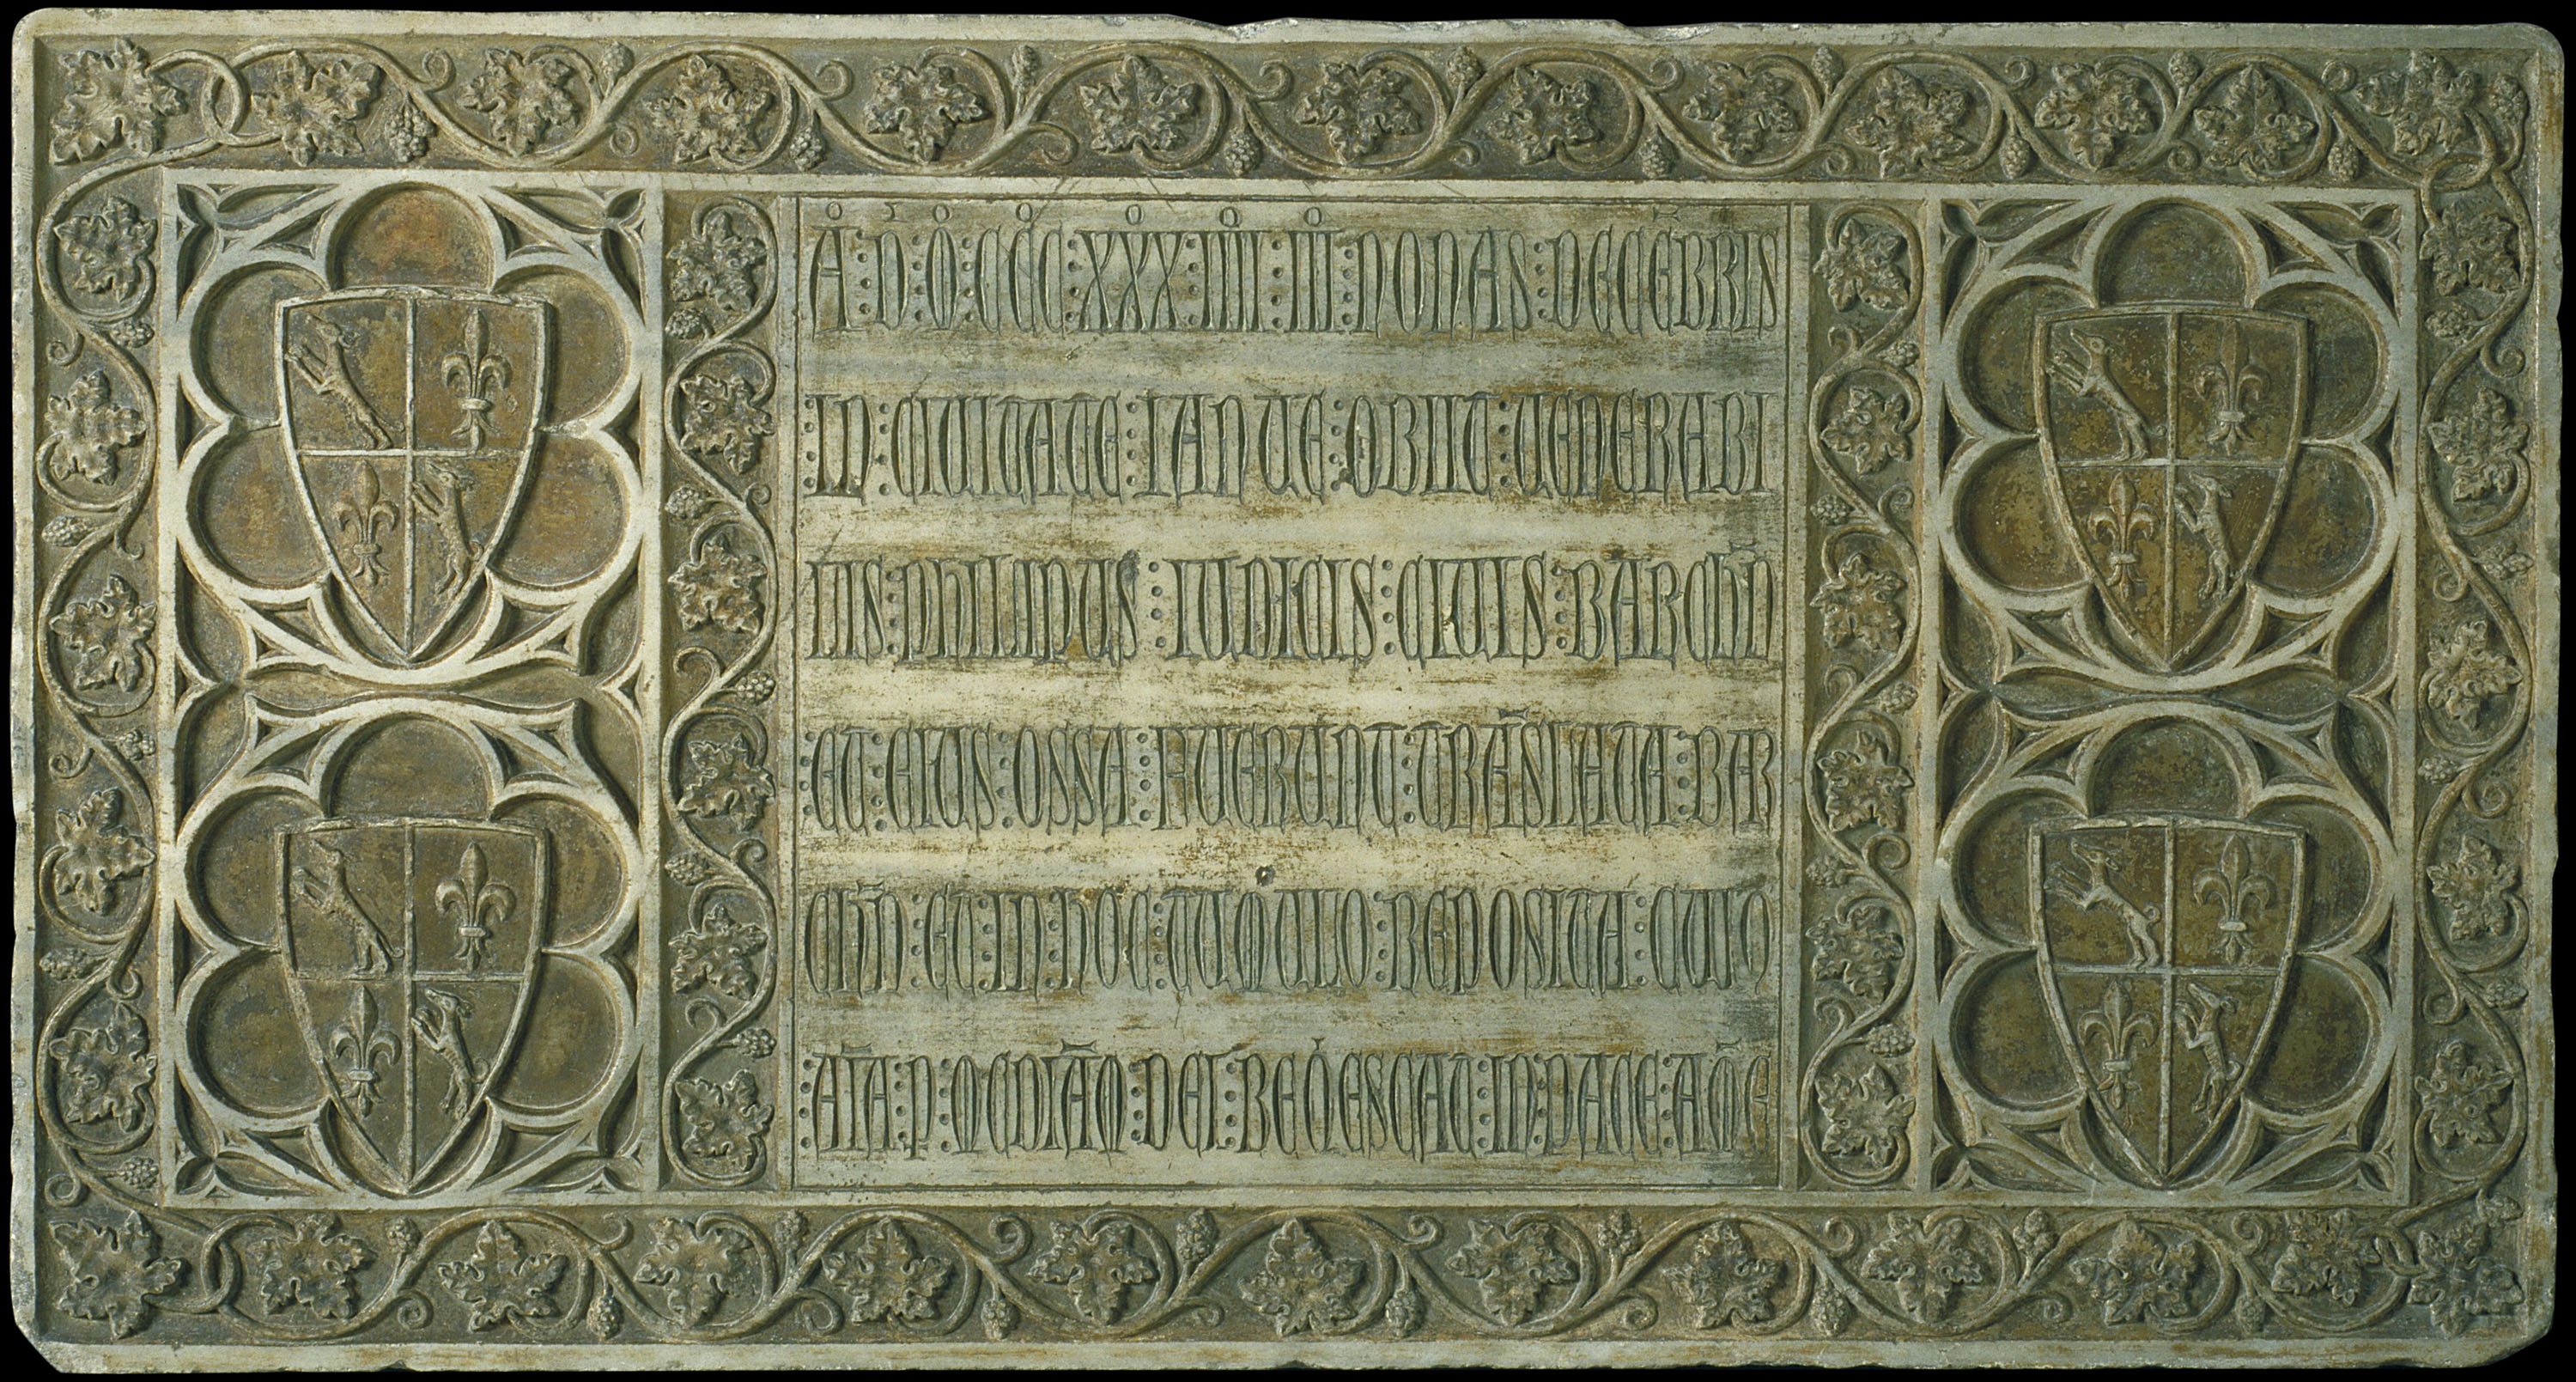 A : D : O : CCC : XXX : IIII : III : NONAS : DECEBRIS
IN : CIUITATE : IANUE : OBIIT : UENERABI
LIS : PHILIPUS : IUDICIS : CIUIS : BARCHN
ET : EIUS : OSSA : FUERUNT : TRASLATA : BAR
CHN : ET : IN : HOC : TUMULO : REPOSITA : CUIꝰ
AIA : P : MEDIAM : DEI : REQESCAT : IN : PACE : AME